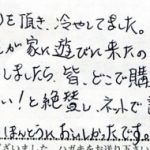 を頂き、冷やしてました。
が家に遊びに来たの
しましたら、皆、どこで購
い!と絶賛し、ネットで
ほんとうにおいしかったです。
ざいました。ハガキをお送り下さい